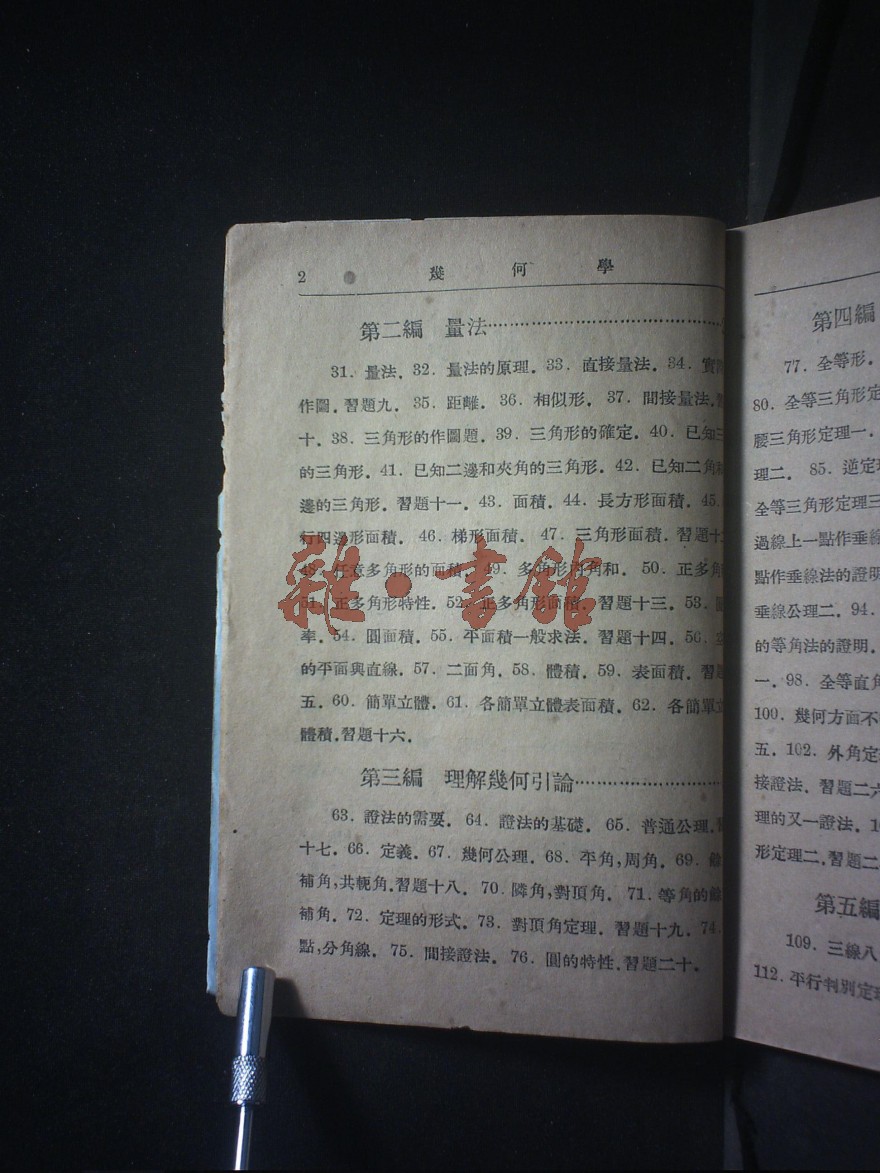 2 幾何學
第二編 量法
31. 量法. 32. 量法的原理. 33. 直接量法. 34. 實
作圖. 習題九. 35. 距離. 36. 相似形. 37. 間接量法.
十. 38. 三角形的作圖題. 39. 三角形的確定. 40. 已知三
的三角形. 41. 已知二邊和夾角的三角形. 42. 已知二角
邊的三角形. 習題十一. 43. 面積. 44. 長方形面積. 45.
行四邊形面積. 46. 梯形面積. 47. 三角形面積. 習題十
48. 任意多角形的面積. 49. 多角形角和. 50. 正多角
51. 正多角形特性. 52. 正多角形面積. 習題十三. 53.
率. 54. 圓面積. 55. 平面積一般求法. 習題十四. 56.
的平面與直線. 57. 二面角. 58. 體積. 59. 表面積. 習題
五. 60. 簡單立體. 61. 各簡單立體表面積. 62. 各簡單立
體積. 習題十六.
第三編 理解幾何引論
63. 證法的需要. 64. 證法的基礎. 65. 普通公理.
十七. 66. 定義. 67. 幾何公理. 68. 平角, 周角. 69.
補角, 共軛角. 習題十八. 70. 隣角, 對頂角. 71. 等角的餘
補角. 72. 定理的形式. 73. 對頂角定理. 習題十九. 74.
點, 分角線. 75. 間接證法. 76. 圓的特性. 習題二十.
第四編
77. 全等形.
80. 全等三角形定
腰三角形定理一.
理二. 85. 逆定
全等三角形定理三
過線上一點作垂線
點作垂線法的證明
垂線公理二. 94.
的等角法的證明.
一. 98. 全等直角
100. 幾何方面不
五. 102. 外角定
接證法. 習題二六
理的又一證法.
形定理二. 習題二
第五編
109. 三線八
112. 平行判別定理
雜·書館